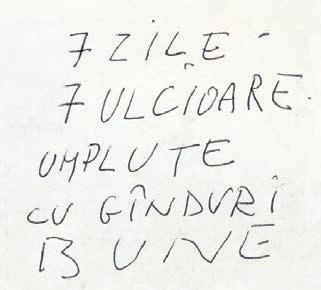 7 ZILE -
7 ULCIOARE.
UMPLUTE
CU GÎNDURI
BUNE